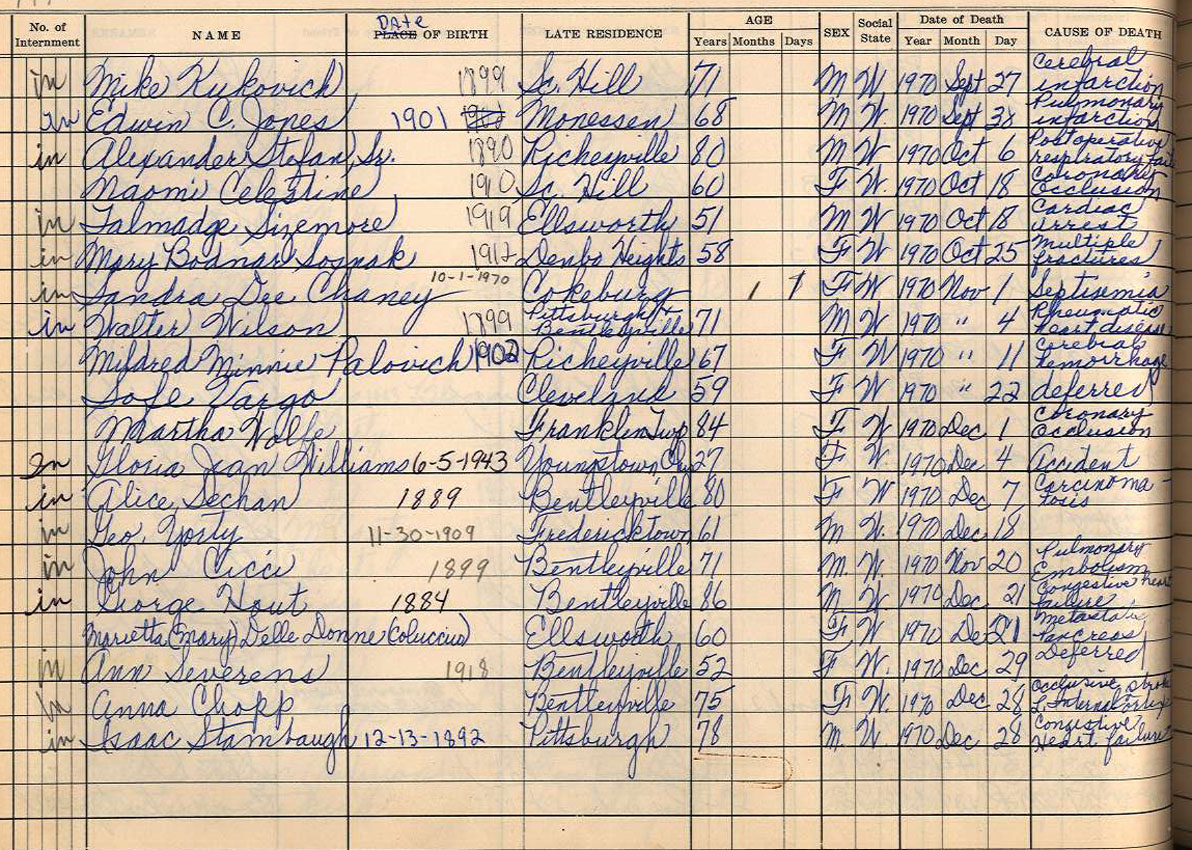 No. of Internment NAME DATE PLACE OF BIRTH LATE RESIDENCE AGE Years Months Days SEX Social State Date of Death Year Month Day CAUSE OF DEATH
in Mike Kukovich 1899 Sc. Hill 71 M W. 1970 Sept 27 Cerebral infarction
in Edwin C. Jones 1901 Monessen 68 M W. 1970 Sept Pulmonary infarction
in Alexander Stofan, Sr. 1890 Richeyville 80 M W. 1970 Oct 6 Postoperative respiratory
Naomi Celestine 1910 Sc. Hill 60 F W. 1970 Oct 18 Coronary Occlusion
in Talmadge Sizemore 1919 Ellsworth 51 M W 1970 Oct 18 Cardiac arrest
in Mary Bodnar Sosnak 1912 Denbo Heights 58 F W 1970 Oct 25 Multiple fractures
in Sandra Dee Chaney 10-1-1970 Cokeburg 1 1 F W 1970 Nov 1 Septisemia
in Walter Wilson 1899 Pittsburgh + Bentleyville 71 M W 1970 " 4 Rheumatic heart disease
Mildred Minnie Palovich 1902 Richeyville 67 F W 1970 " 11 Cerebral hemorrhage
Vargo Cleveland 59 F W 1970 " 22 deferred
Martha Wolfe Franklin Twp 84 F W 1970 Dec 1 Coronary Occlusion
In Gloria Jean Williams 6-5-1943 Youngstown 27 F W. 1970 Dec 4 Accident
in Alice Sechan 1889 Bentleyville 80 F W 1970 Dec 7 Carcinoma-tosis
in Geo. Yosty 11-30-1909 Fredericktown 61 M W. 1970 Dec 18
in John Cicci 1899 Bentleyville 71 M. W. 1970 Nov 20 Pulmonary Embolism
in George Hout 1884 Bentleyville 86 M W. 1970 Dec 21 Congestive heart failure
Marietta (Mary) Delle Donne (Coluccio) Ellsworth 60 F W 1970 Dec 21 Pancreas
in Ann Severens 1918 Bentleyville 52 F W. 1970 Dec 29 Deferred
in Anna Chopp Bentleyville 75 F W. 1970 Dec 28 Occlusive stroke Internal
in Isaac Stambaugh 12-13-1892 Pittsburgh 78 M. W 1970 Dec 28 Congestive Heart failure